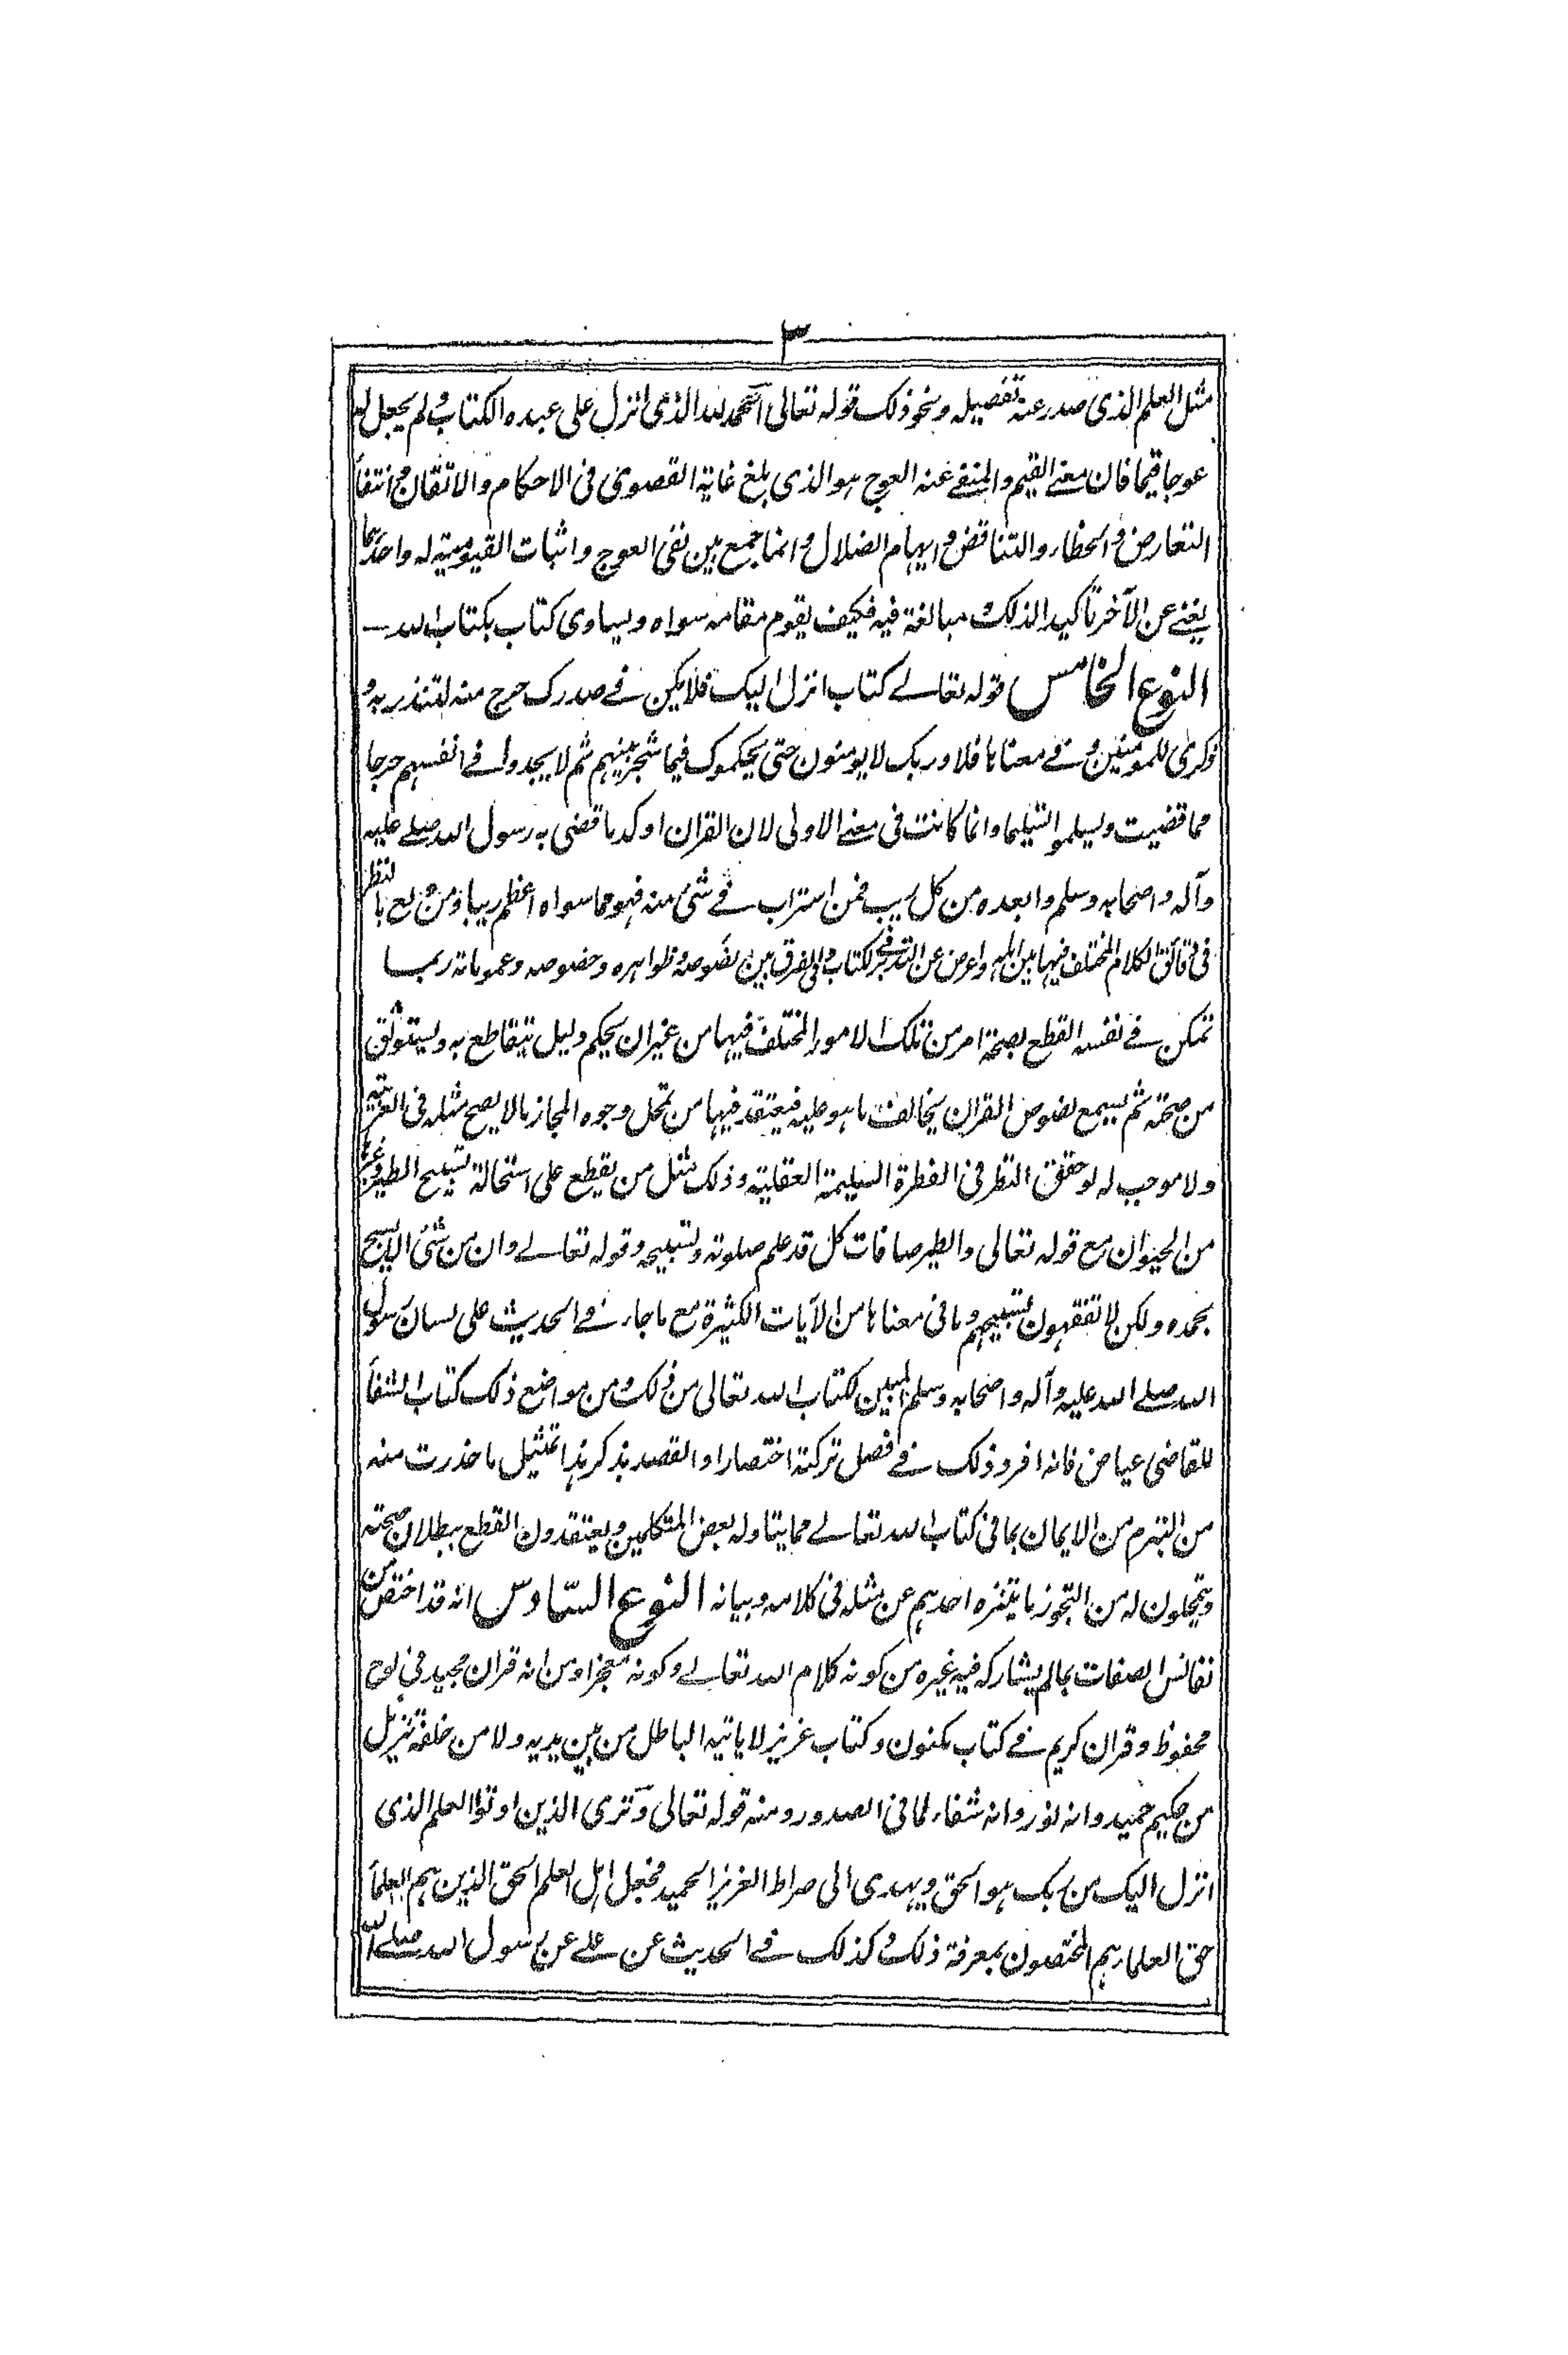 ٣
مثل العلم الذى صدر عنه تفصيله ونحو ذلك قوله تعالى الحمد لله الذى انزل على عبده الكتاب ولم يجعل له
عوجا قيما فان معنے القيم والمنفے عنه العوج هو الذى بلغ غاية القصوى فى الاحكام والاتقان مع انتفأ
التعارض والخطاء والتناقض وايهام الضلال وانما جمع بين نفى العوج واثبات القيومية له واحدهما
يغنے عن الآخر تاكيدا لذلك ومبالغة فيه فكيف يقوم مقامه سواه ويساوى كتاب بكتاب الله ــ
النوع الخامس قوله تعالے كتاب انزل اليك فلا يكن فے صدرك حرج منه لتنذر به و
ذكرى للمومنين وفے معناها فلا وربك لا يومنون حتى يحكموك فيما شجر بينهم ثم لا يجدوا فے انفسهم حرجا
مما قضيت ويسلموا تسليما وانما كانت فى معنے الاولى لان القران اوكد ما قضى به رسول الله صلے عليه
وآله واصحابه وسلم وابعده من كل ريب فمن استراب فے شئ منه فهو مما سواه اعظم ريبا ومن ولع بالنظر
فى دقائق الكلام المختلف فيها بين اهله واعرض عن التدبر فے الكتاب والفرق بين نصوصه وظواهره وخصوصه وعموماته ربما
تمكن فے نفسه القطع بصحة امر من تلك الامور المختلف فيها من غير ان يحكم دليل يتقاطع به ويستوثق
من صحته ثم يسمع نصوص القران يخالف ما هو عليه فيعتقد فيها من تمحل وجوه المجاز ما لا يصح مثله فى العربية
ولا موجب له لو حقق النظر فى الفطرة السليمة العقلية وذلك مثل من يقطع على استحالة تسبيح الطير وغيرها
من الحيوان مع قوله تعالى والطير صافات كل قد علم صلوته وتسبيحه وقوله تعالے وان من شئ الا يسبح
بحمده ولكن لا تفقهون تسبيحهم وما فى معناها من الآيات الكثيرة مع ما جاء فے الحديث على لسان رسول
الله صلے الله عليه وآله واصحابه وسلم المبين لكتاب الله تعالى من ذلك ومن مواضع ذلك كتاب الشفأ
للقاضى عياض فانه افرد ذلك فے فصل تركته اختصارا والقصد بذكر هذا تمثيل ما حذرت منه
من التبرم من الايمان بما فى كتاب الله تعالے مما يتاوله بعض المتكلمين ويعتقدون القطع ببطلان صحته
ويتمحلون له من التجوز ما يتنزه احدهم عن مثله فى كلامه وبيانه النوع السادس انه قد اختص من
نفائس الصفات بما لم يشاركه فيه غيره من كونه كلام الله تعالے وكونه معجزا ومن انه قران مجيد فى لوح
محفوظ وقران كريم فے كتاب مكنون وكتاب عزيز لا ياتيه الباطل من بين يديه ولا من خلفه تنزيل
من حكيم حميد وانه نور وانه شفاء لما فى الصدور ومنه قوله تعالى وترى الذين اوتوا العلم الذى
انزل اليك من ربك هو الحق ويهدى الى صراط العزيز الحميد فجعل اهل العلم الحق الذين هم العلمأ
حق العلماء هم المختصون بمعرفة ذلك وكذلك فے الحديث عن علے عن رسول الله صلے الله